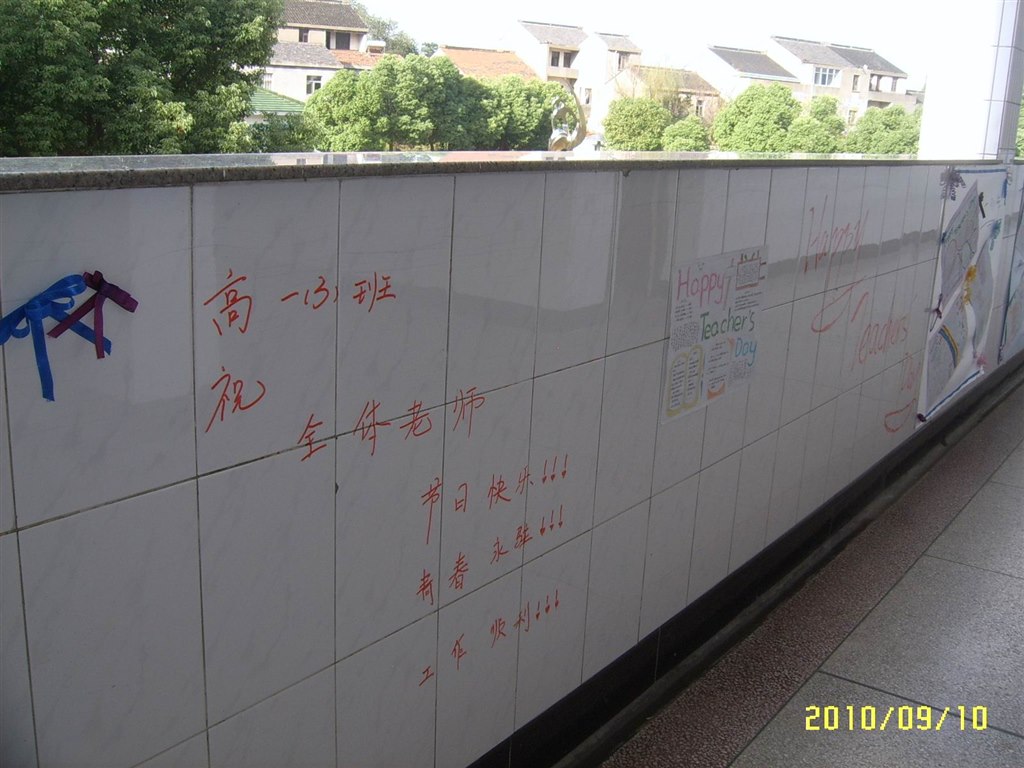 高一(3)班
祝
全体老师
节日快乐!!!
青春永驻!!!
工作顺利!!!
Happy
Teacher's
Day
Happy
Teachers
Day
2010/09/10